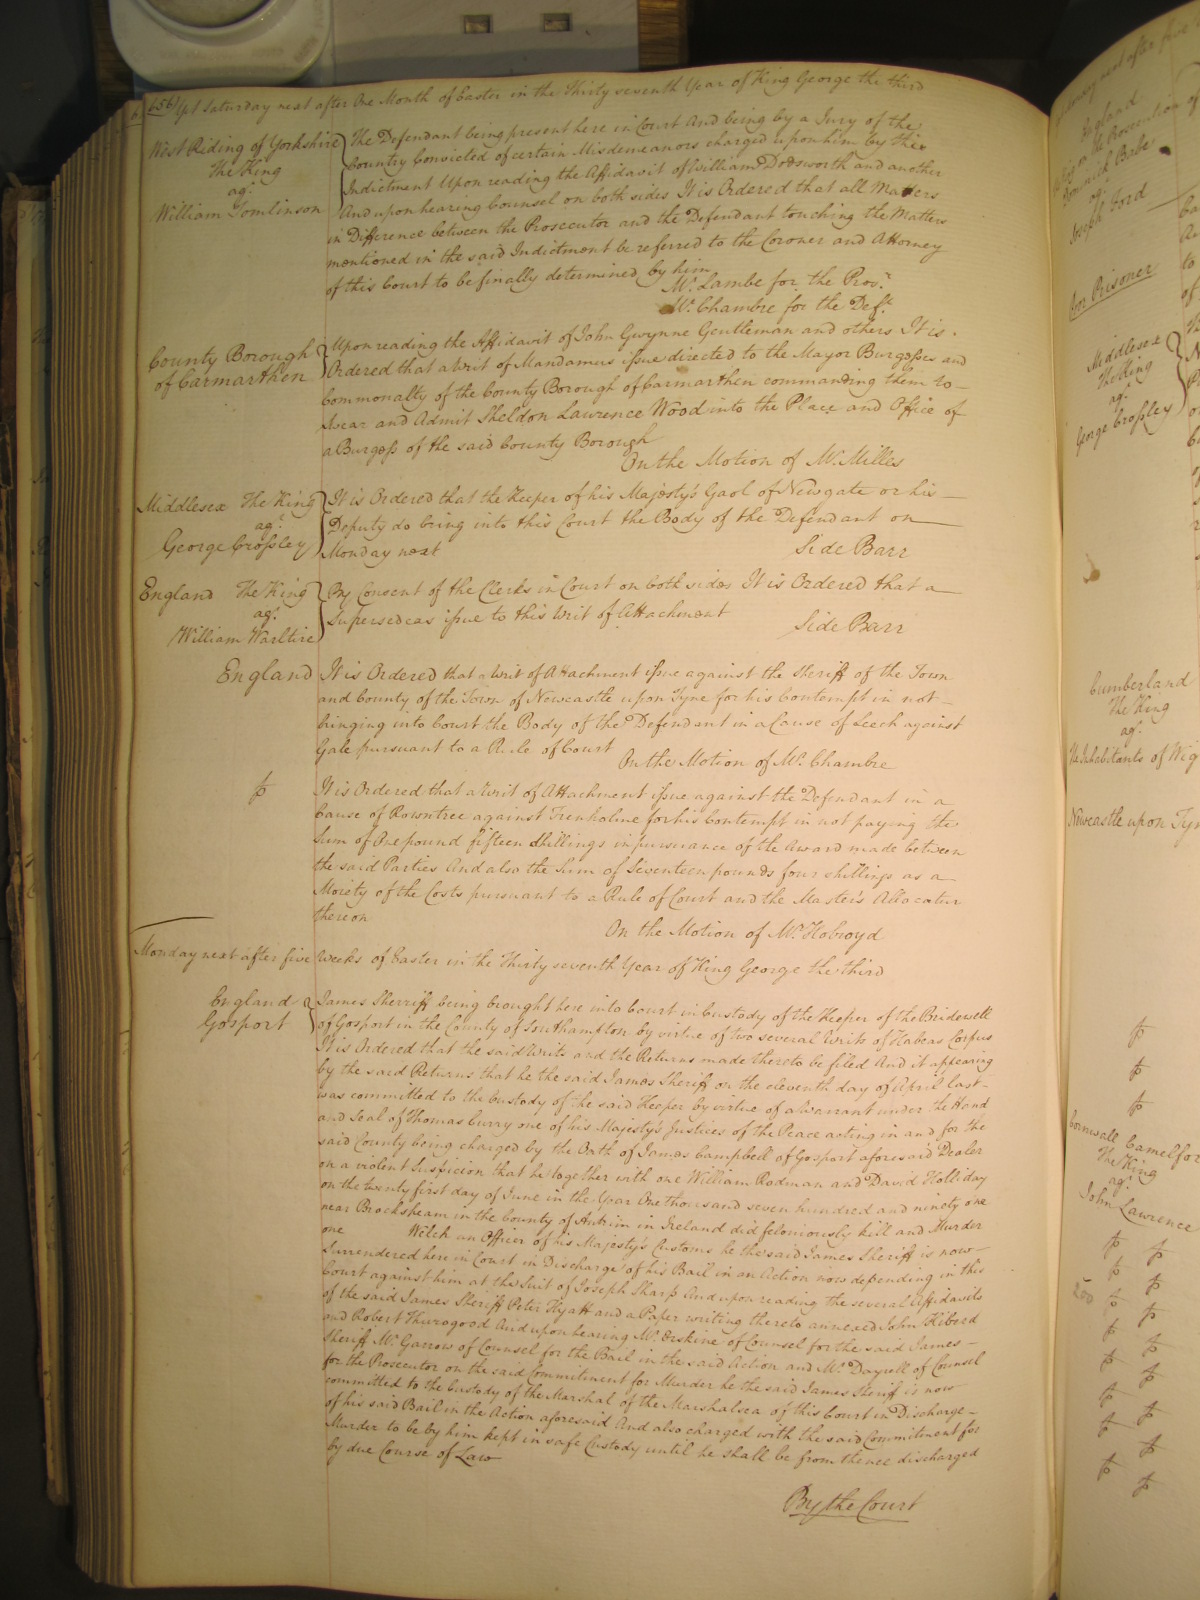 656 Yet Saturday next after One Month of Easter in the Thirty seventh Year of King George the third
West Riding of Yorkshire
The King
agt.
William Tomlinson
The Defendant being present here in Court And being by a Jury of the
Country Convicted of certain Misdemeanors charged upon him by this
Indictment Upon reading the Affidavit of William Dodsworth and another
And upon hearing Counsel on both sides It is Ordered that all Matters
in Difference between the Prosecutor and the Defendant touching the Matters
mentioned in the said Indictment be referred to the Coroner and Attorney
of this Court to be finally determined by him
Mr. Lambe for the Prosr.
Mr. Chambre for the Deft.
County Borough
of Carmarthen
Upon reading the Affidavit of John Gwynne Gentleman and others It is
Ordered that a Writ of Mandamus issue directed to the Mayor Burgesses and
Commonalty of the County Borough of Carmarthen commanding them to
swear and Admit Sheldon Lawrence Wood into the Place and Office of
a Burgess of the said County Borough
On the Motion of Mr. Milles
Middlesex The King
agt.
George Crossley
It is Ordered that the Keeper of his Majesty's Gaol of Newgate or his
Deputy do bring into this Court the Body of the Defendant on
Monday next
Side Barr
England The King
agt.
William Warltire
By Consent of the Clerks in Court on both sides It is Ordered that a
Supersedeas issue to this Writ of Attachment
Side Barr
England
It is Ordered that a Writ of Attachment issue against the Sheriff of the Town
and County of the Town of Newcastle upon Tyne for his Contempt in not
bringing into Court the Body of the Defendant in a Cause of Leech against
Gale pursuant to a Rule of Court
On the Motion of Mr. Chambre
It is Ordered that a Writ of Attachment issue against the Defendant in a
Cause of Rowntree against Trenholme for his Contempt in not paying the
Sum of One pound fifteen shillings in pursuance of the Award made between
the said Parties And also the Sum of Seventeen pounds four shillings as a
Moiety of the Costs pursuant to a Rule of Court and the Master's Allocatur
thereon
On the Motion of Mr. Holroyd
Monday next after five Weeks of Easter in the Thirty seventh Year of King George the third
England
Gosport
James Sherriff being brought here into Court in Custody of the Keeper of the Bridewell
of Gosport in the County of Southampton by virtue of two several Writs of Habeas Corpus
It is Ordered that the said Writs and the Returns made thereto be filed And it appearing
by the said Returns that he the said James Sheriff on the eleventh day of April last
was committed to the Custody of the said Keeper by virtue of a Warrant under the Hand
and Seal of Thomas Curry one of his Majesty's Justices of the Peace acting in and for the
said County being charged by the Oath of James Campbell of Gosport aforesaid Dealer
on a violent Suspicion that he together with one William Rodman and David Holliday
on the twenty first day of June in the Year One thousand seven hundred and ninety one
near Brocksheam in the County of Antrim in Ireland did feloniously kill and Murder
one Welch an Officer of his Majesty's Customs he the said James Sheriff is now
Surrendered here in Court in Discharge of his Bail in an Action now depending in this
Court against him at the Suit of Joseph Sharp And upon reading the several Affidavits
of the said James Sheriff Peter Hyatt and a Paper writing thereto annexed John Hiberd
and Robert Thurogood And upon hearing Mr. Erskine of Counsel for the said James
Sheriff Mr. Garrow of Counsel for the Bail in the said Action and Mr. Dayrell of Counsel
for the Prosecutor on the said Commitment for Murder he the said James Sheriff is now
committed to the Custody of the Marshal of the Marshalsea of this Court in Discharge
of his said Bail in the Action aforesaid And also charged with the said Commitment for
Murder to be by him kept in safe Custody until he shall be from thence discharged
by due Course of Law
By the Court
England
Joseph Ford
For Prisoner
Middlesex
The King
agt.
George Crossley
Cumberland
The King
agt.
The Inhabitants of Wig
Newcastle upon Tyn
Cornwall Camelfor
The King
agt.
John Lawrence